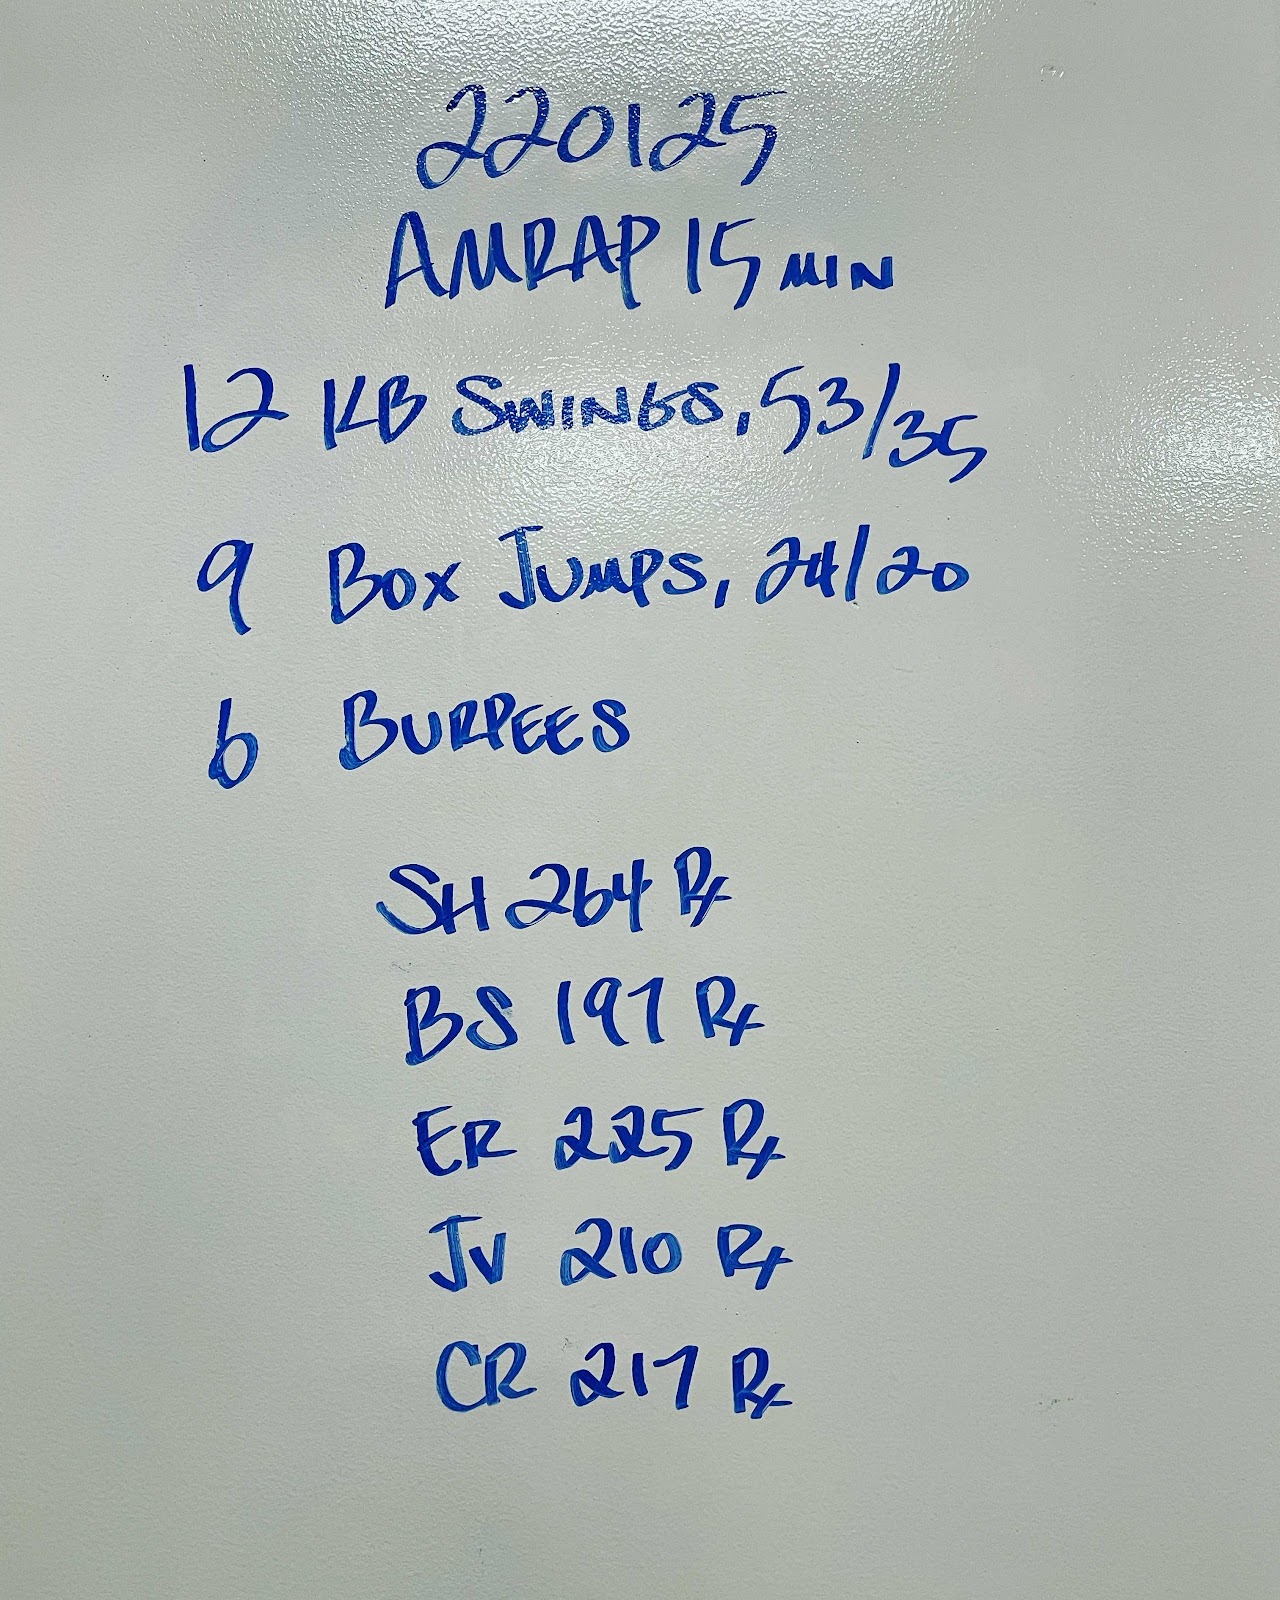 220125
AMRAP 15 MIN
12 KB SWINGS, 53/35
9 BOX JUMPS, 24/20
6 BURPEES
SH 264 Rx
BS 197 Rx
ER 225 Rx
JV 210 Rx
CR 217 Rx